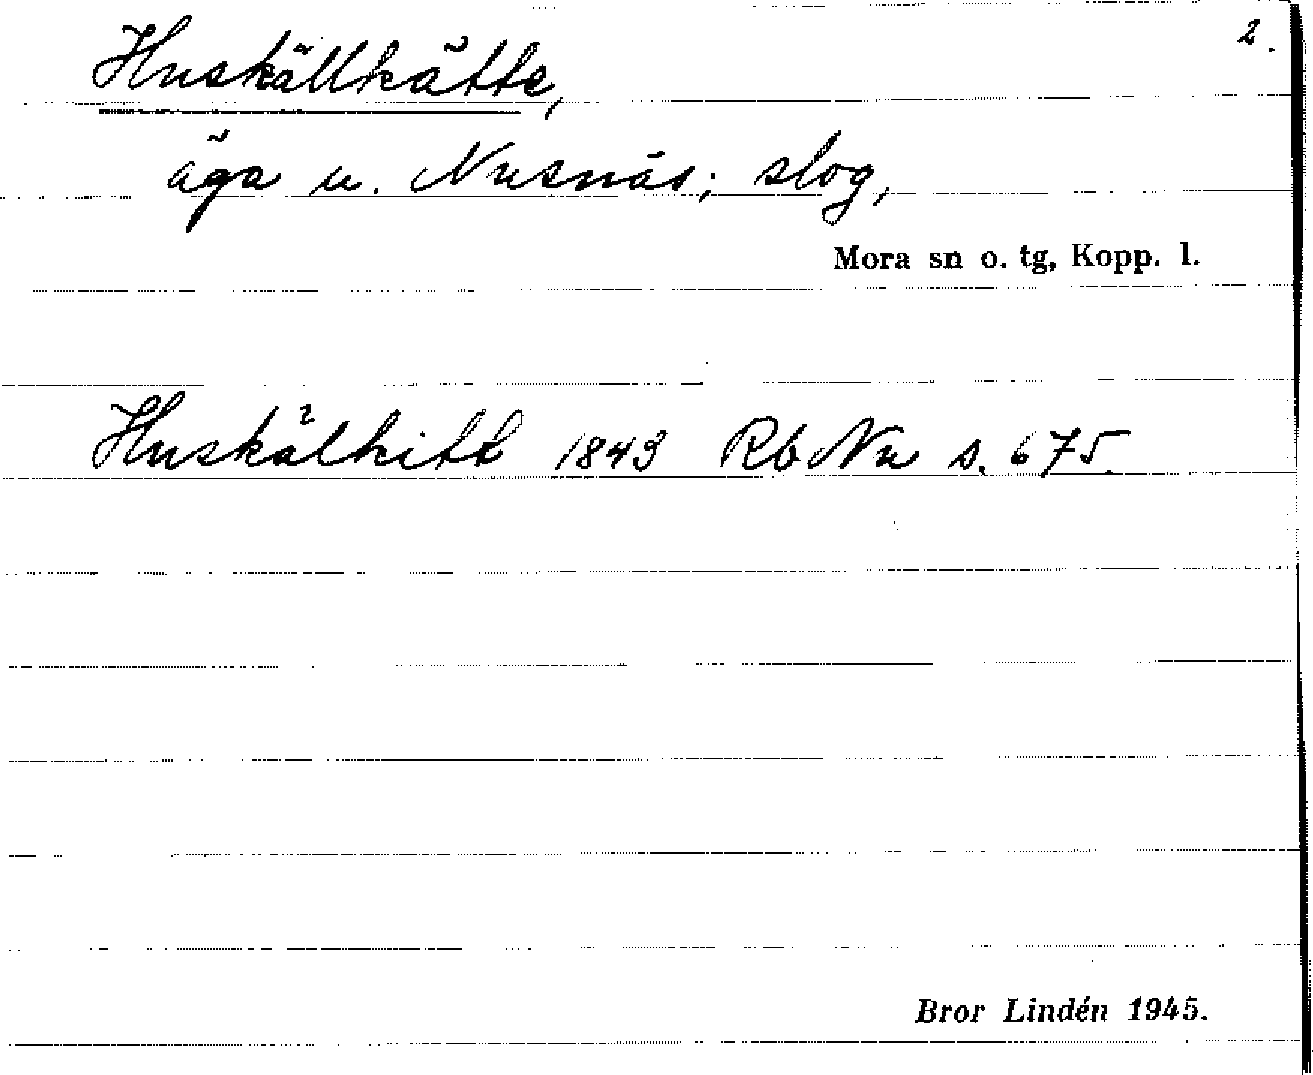 2.
Huskällkätte,
äga u. Nusnäs; slog,
Mora sn o. tg, Kopp. l.
Huskälkitt 1843 Rb Nu s. 675.
Bror Lindén 1945.